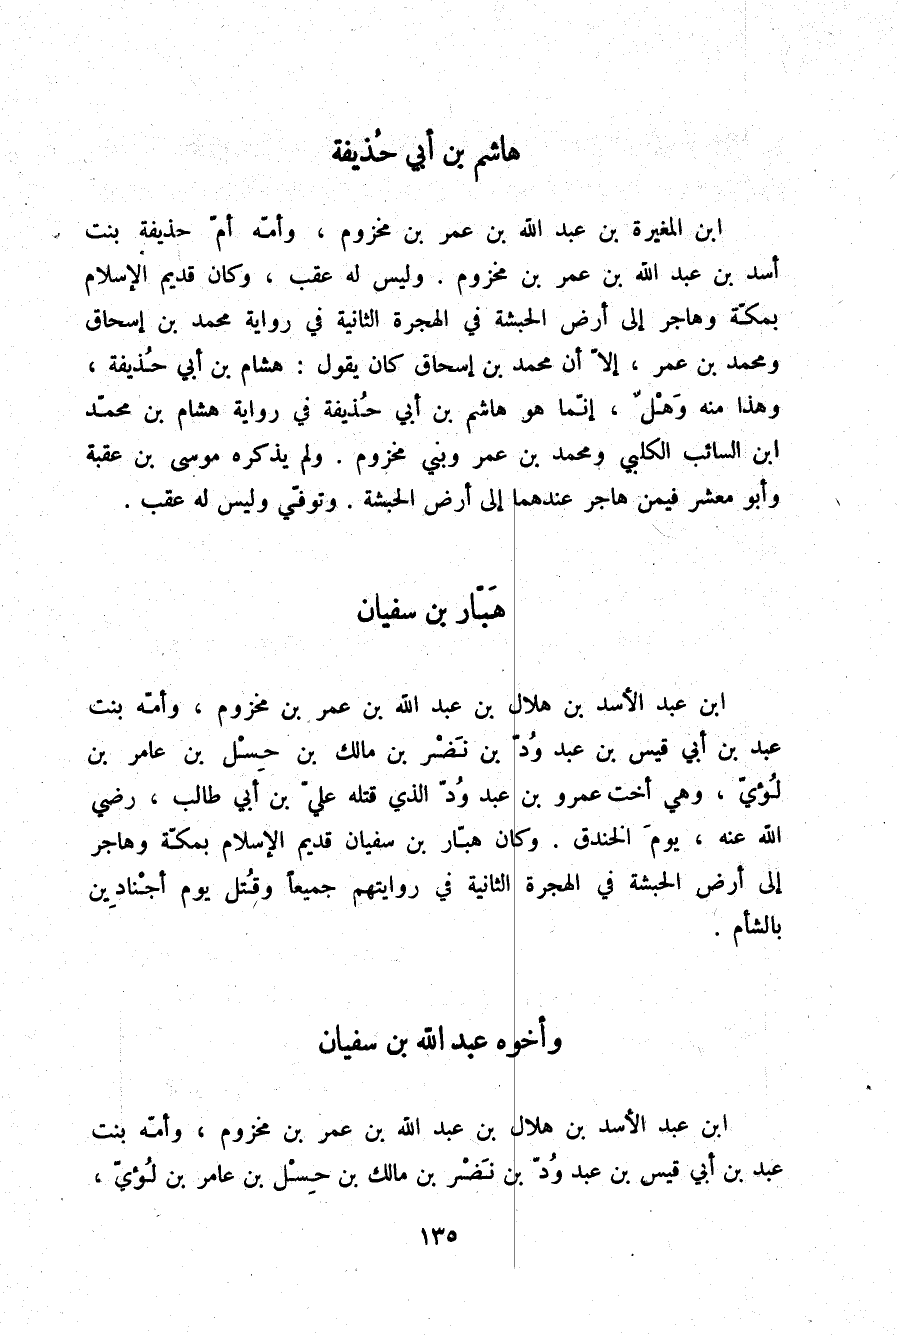 هاشم بن أبي حُذيفة
ابن المغيرة بن عبد الله بن عمر بن مخزوم ، وأمّه أمّ حذيفة بنت
أسد بن عبد الله بن عمر بن مخزوم . وليس له عقب ، وكان قديم الإسلام
بمكّة وهاجر إلى أرض الحبشة في الهجرة الثانية في رواية محمد بن إسحاق
ومحمد بن عمر ، إلاّ أن محمد بن إسحاق كان يقول : هشام بن أبي حُذيفة ،
وهذا منه وَهْلٌ ، إنّما هو هاشم بن أبي حُذيفة في رواية هشام بن محمّد
ابن السائب الكلبي ومحمد بن عمر وبني مخزوم . ولم يذكره موسى بن عقبة
وأبو معشر فيمن هاجر عندهما إلى أرض الحبشة . وتوفّي وليس له عقب .
هَبّار بن سفيان
ابن عبد الأسد بن هلال بن عبد الله بن عمر بن مخزوم ، وأمّه بنت
عبد بن أبي قيس بن عبد وُدّ بن نَضْر بن مالك بن حِسْل بن عامر بن
لُؤيّ ، وهي أخت عمرو بن عبد وُدّ الذي قتله عليّ بن أبي طالب ، رضي
الله عنه ، يومَ الخندق . وكان هبّار بن سفيان قديم الإسلام بمكّة وهاجر
إلى أرض الحبشة في الهجرة الثانية في روايتهم جميعاً وقُتل يوم أجْنادِين
بالشأم .
وأخوه عبد الله بن سفيان
ابن عبد الأسد بن هلال بن عبد الله بن عمر بن مخزوم ، وأمّه بنت
عبد بن أبي قيس بن عبد وُدّ بن نَضْر بن مالك بن حِسْل بن عامر بن لُؤيّ ،
١٣٥